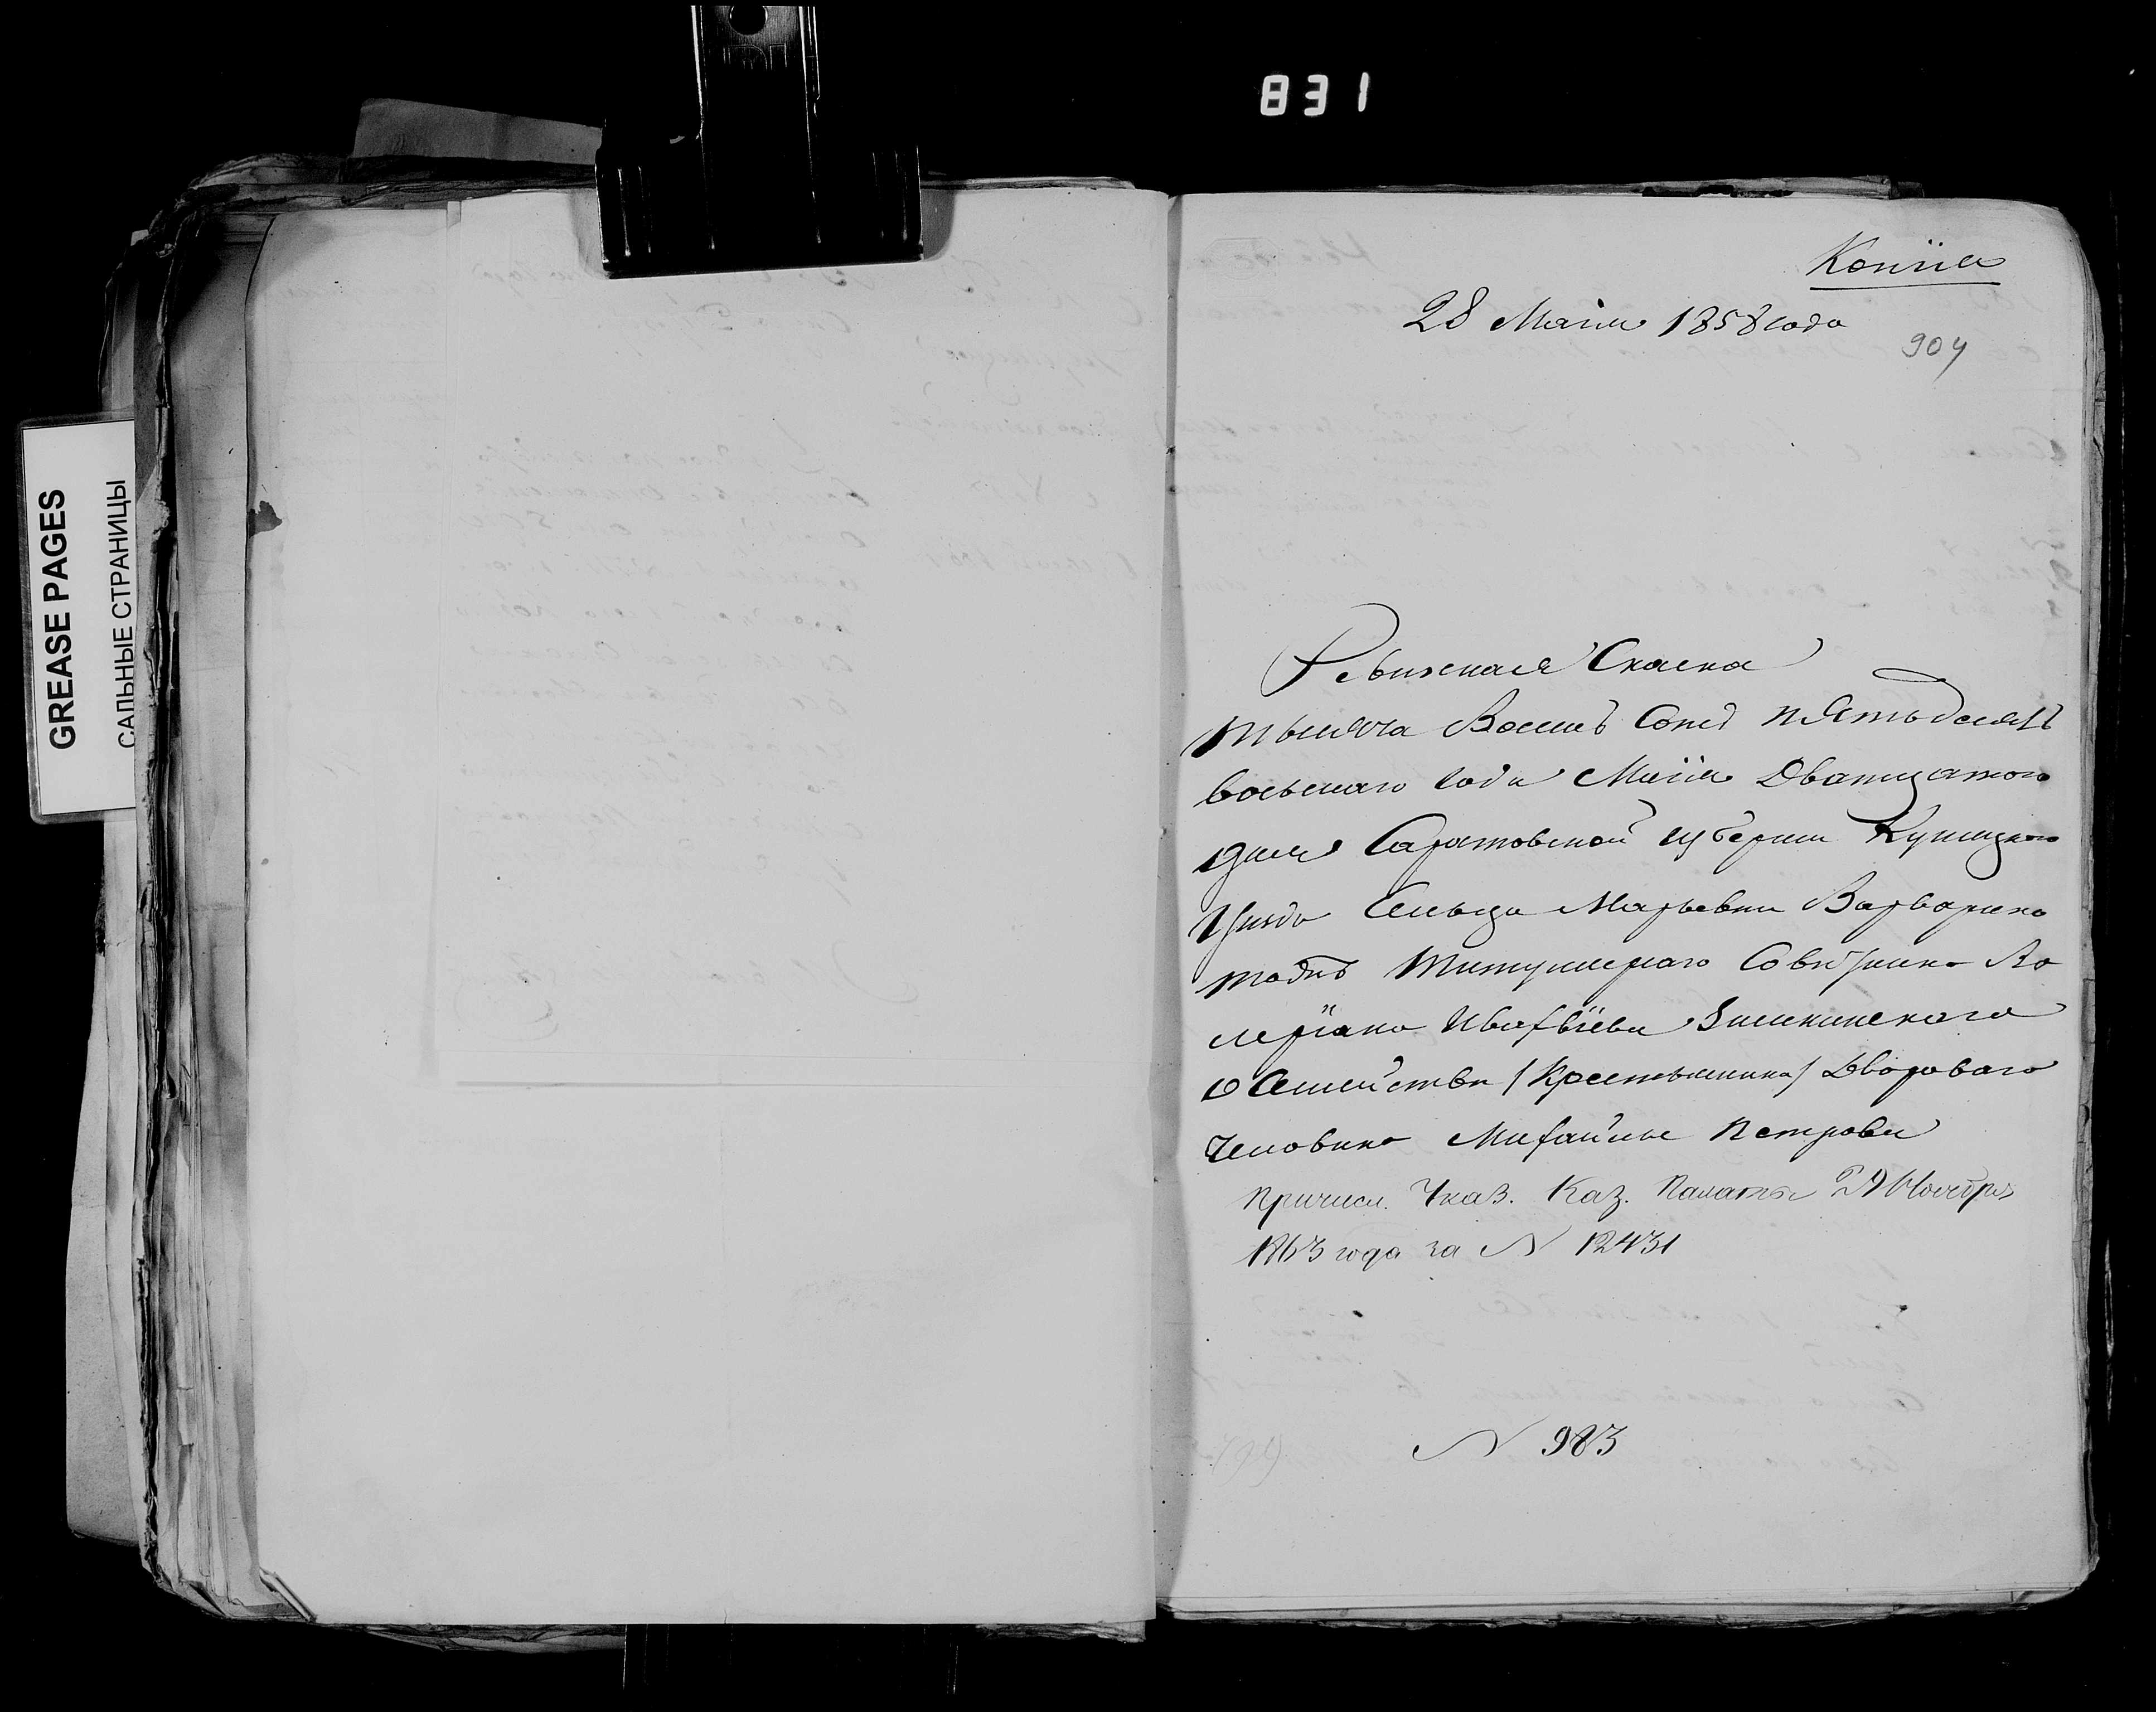 831
GREASE PAGES
САЛЬНЫЕ СТРАНИЦЫ
Копiя
28 Маiя 1858 года
904
Ревизская Скаска
тысяча Восемь Сотъ пятьдесятъ
восьмаго года Маiя Дватцатого
дня Саратовской губернiи Кузнецкого
Уезда Сельца Марьевки Варварино
тожъ Титулярнаго Советника Ва
лерiана
о Семействе /Крестьянина/ Двороваго
Человека Михайлы Петрова
Причисл. Указ. Каз. Палаты 29 Ноября
1863 года за N 12431
N 983